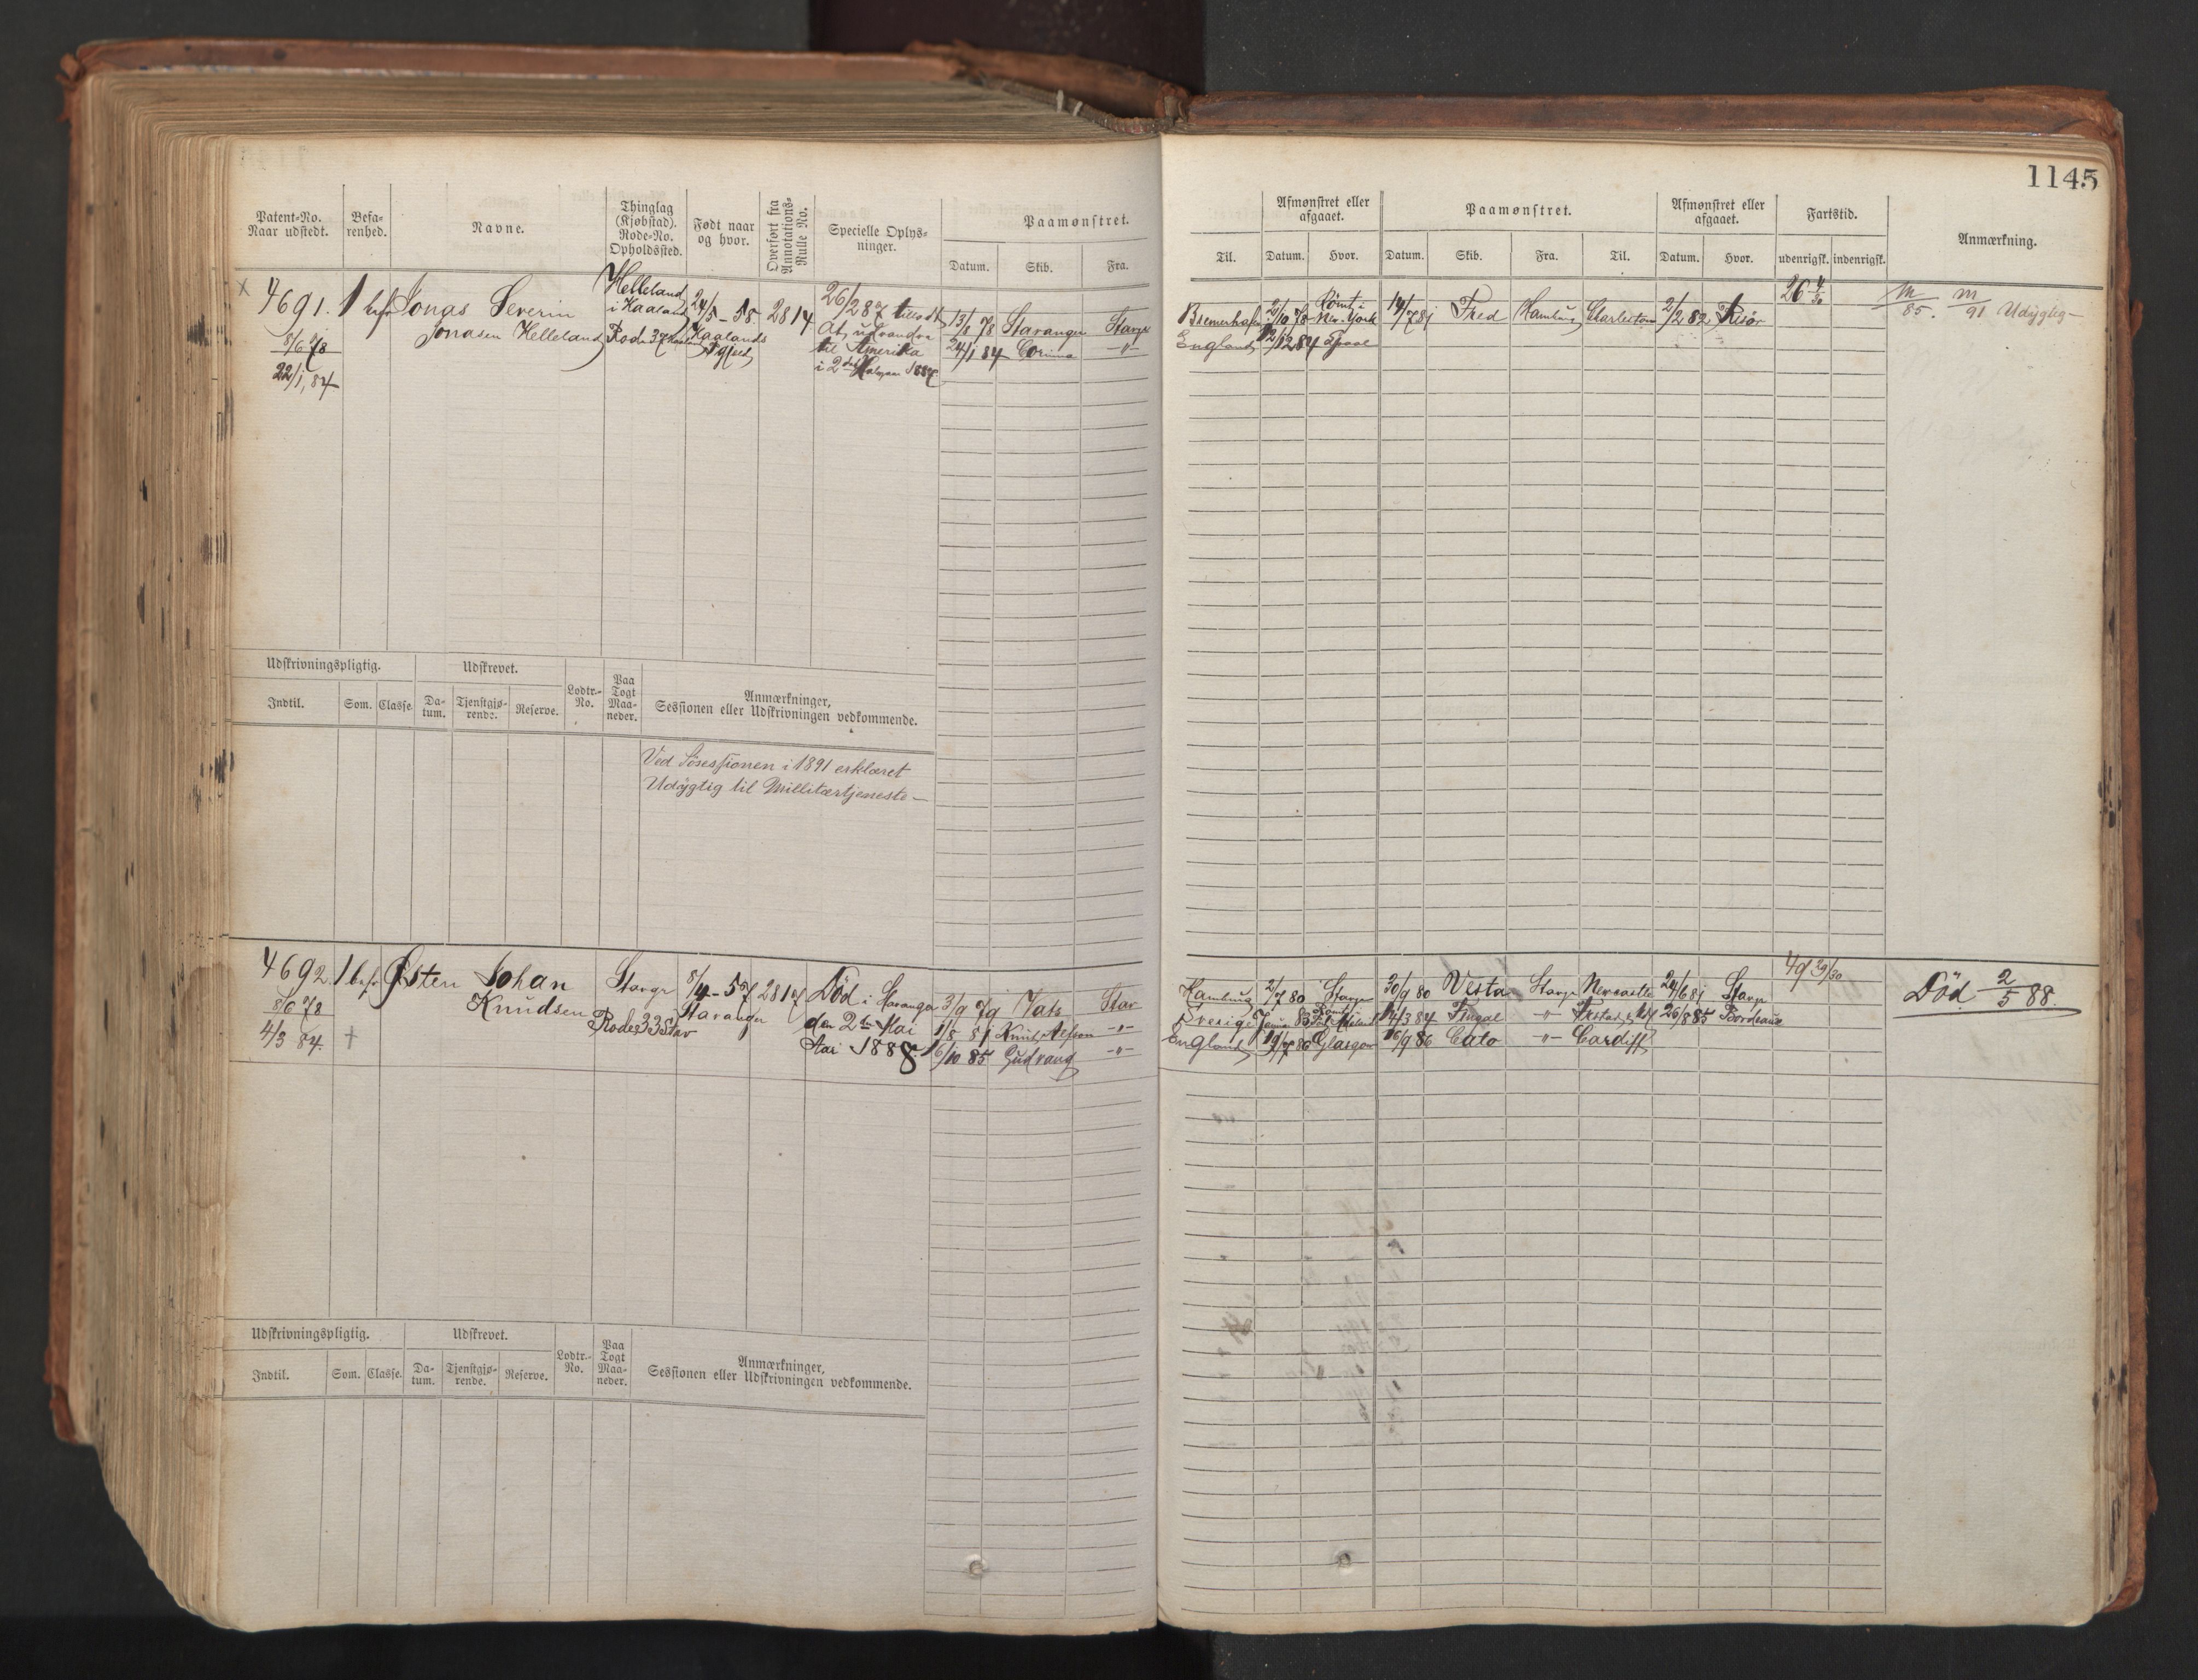 1145
Patent-No. Naar udstedt.
Befarenhed.
Navne.
Thinglag (Kjøbstad). Rode-No. Opholdssted.
Født naar og hvor.
Overført fra Annotations-Rulle No.
Specielle Oplysninger.
Paamønstret.
Datum. Skib. Fra.
Til.
Afmønstret eller afgaaet.
Datum. Hvor.
Paamønstret.
Datum. Skib. Fra. Til.
Afmønstret eller afgaaet.
Datum. Hvor.
Fartstid.
udenrigsk. indenrigsk.
Anmærkning.
X 4691.
8/6 78
22/1, 84
1 bef
Jonas Severin
Jonasen Helleland
Helleland
i Kaaland
Rode 37
24/5-58
Kaalands
2814
26/2 87 tilladt
at udvandre
til Amerika
i 2det Halvaar 1887
13/8 78 Stavanger Stavgr
24/1 84 Corinna -"-
Bremerhafen 2/10 78 Rømt i New-York 14/7 81 Fred Hamburg Charleston 2/2 82 Risør
England 12/12 84
26 4/30
m/85. m/91 Udygtig
Udskrivningspligtig.
Indtil. Som. Classe.
Udskrevet.
Datum. Tjenstgjørende. Reserve.
Lodtr.-No.
Paa Togt Maaneder.
Anmærkninger,
Sessionen eller Udskrivningen vedkommende.
Ved Søsessionen i 1891 erklæret
Udygtig til Millitærtjeneste
4692
8/6 78
4/3 84.
1 bef
†
Østen Johan
Knudsen
Stavgr
Rode 33 Stav
8/4-57
Stavanger
2817
Död i Stavanger
den 2den Mai
Mai 1888
3/9 79 Vats Stav
1/8 81 -"-
6/10 85 Gudvang -"-
Hamburg 2/7 80 Stavgr 30/9 80 Vesta Stavgr Newcastle 24/6 81 Stavgr
Sverige 14/3 84 Fingal -"- 26/8 85 Bordeaux
England 19/7 86 Glasgow 16/9 86 Cato -"- Cardiff
49 29/30
Död 2/5 88.
Udskrivningspligtig.
Indtil. Som. Classe.
Udskrevet.
Datum. Tjenstgjørende. Reserve.
Lodtr.-No.
Paa Togt Maaneder.
Anmærkninger,
Sessionen eller Udskrivningen vedkommende.